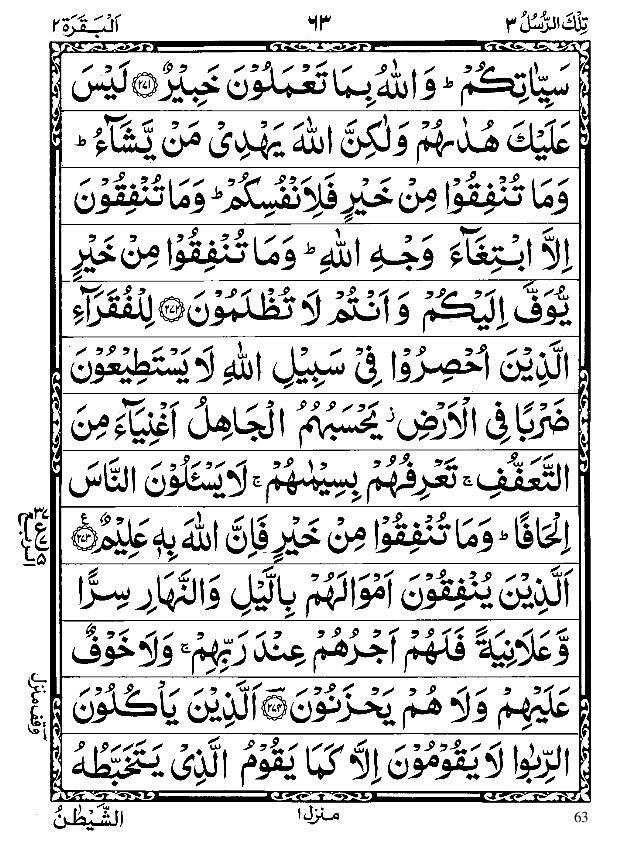 تِلْكَ الرُّسُلُ ٣ ٦٣ اَلْبَقَرَة ٢
سَيِّاٰتِكُمْؕ وَاللّٰهُ بِمَا تَعْمَلُوْنَ خَبِيْرٌ ﴿۲۷۱﴾ لَيْسَ
عَلَيْكَ هُدٰىهُمْ وَلٰكِنَّ اللّٰهَ يَهْدِىْ مَنْ يَّشَآءُؕ
وَمَا تُنْفِقُوْا مِنْ خَيْرٍ فَلِاَنْفُسِكُمْؕ وَمَا تُنْفِقُوْنَ
اِلَّا ابْتِغَآءَ وَجْهِ اللّٰهِؕ وَمَا تُنْفِقُوْا مِنْ خَيْرٍ
يُّوَفَّ اِلَيْكُمْ وَاَنْتُمْ لَا تُظْلَمُوْنَ ﴿۲۷۲﴾ لِلْفُقَرَآءِ
الَّذِيْنَ اُحْصِرُوْا فِىْ سَبِيْلِ اللّٰهِ لَا يَسْتَطِيْعُوْنَ
ضَرْبًا فِى الْاَرْضِؗ يَحْسَبُهُمُ الْجَاهِلُ اَغْنِيَآءَ مِنَ
التَّعَفُّفِۚ تَعْرِفُهُمْ بِسِيْمٰهُمْۚ لَا يَسْـَٔلُوْنَ النَّاسَ
اِلْحَافًاؕ وَمَا تُنْفِقُوْا مِنْ خَيْرٍ فَاِنَّ اللّٰهَ بِهٖ عَلِيْمٌ ﴿۲۷۳﴾ ع
اَلَّذِيْنَ يُنْفِقُوْنَ اَمْوَالَهُمْ بِالَّيْلِ وَالنَّهَارِ سِرًّا
وَّعَلَانِيَةً فَلَهُمْ اَجْرُهُمْ عِنْدَ رَبِّهِمْۚ وَلَا خَوْفٌ
عَلَيْهِمْ وَلَا هُمْ يَحْزَنُوْنَ ﴿۲۷۴﴾ اَلَّذِيْنَ يَاْكُلُوْنَ
الرِّبٰوا لَا يَقُوْمُوْنَ اِلَّا كَمَا يَقُوْمُ الَّذِىْ يَتَخَبَّطُهُ
الربع
وقف منزل
63 منزل ١ الشَّيْطٰنُ